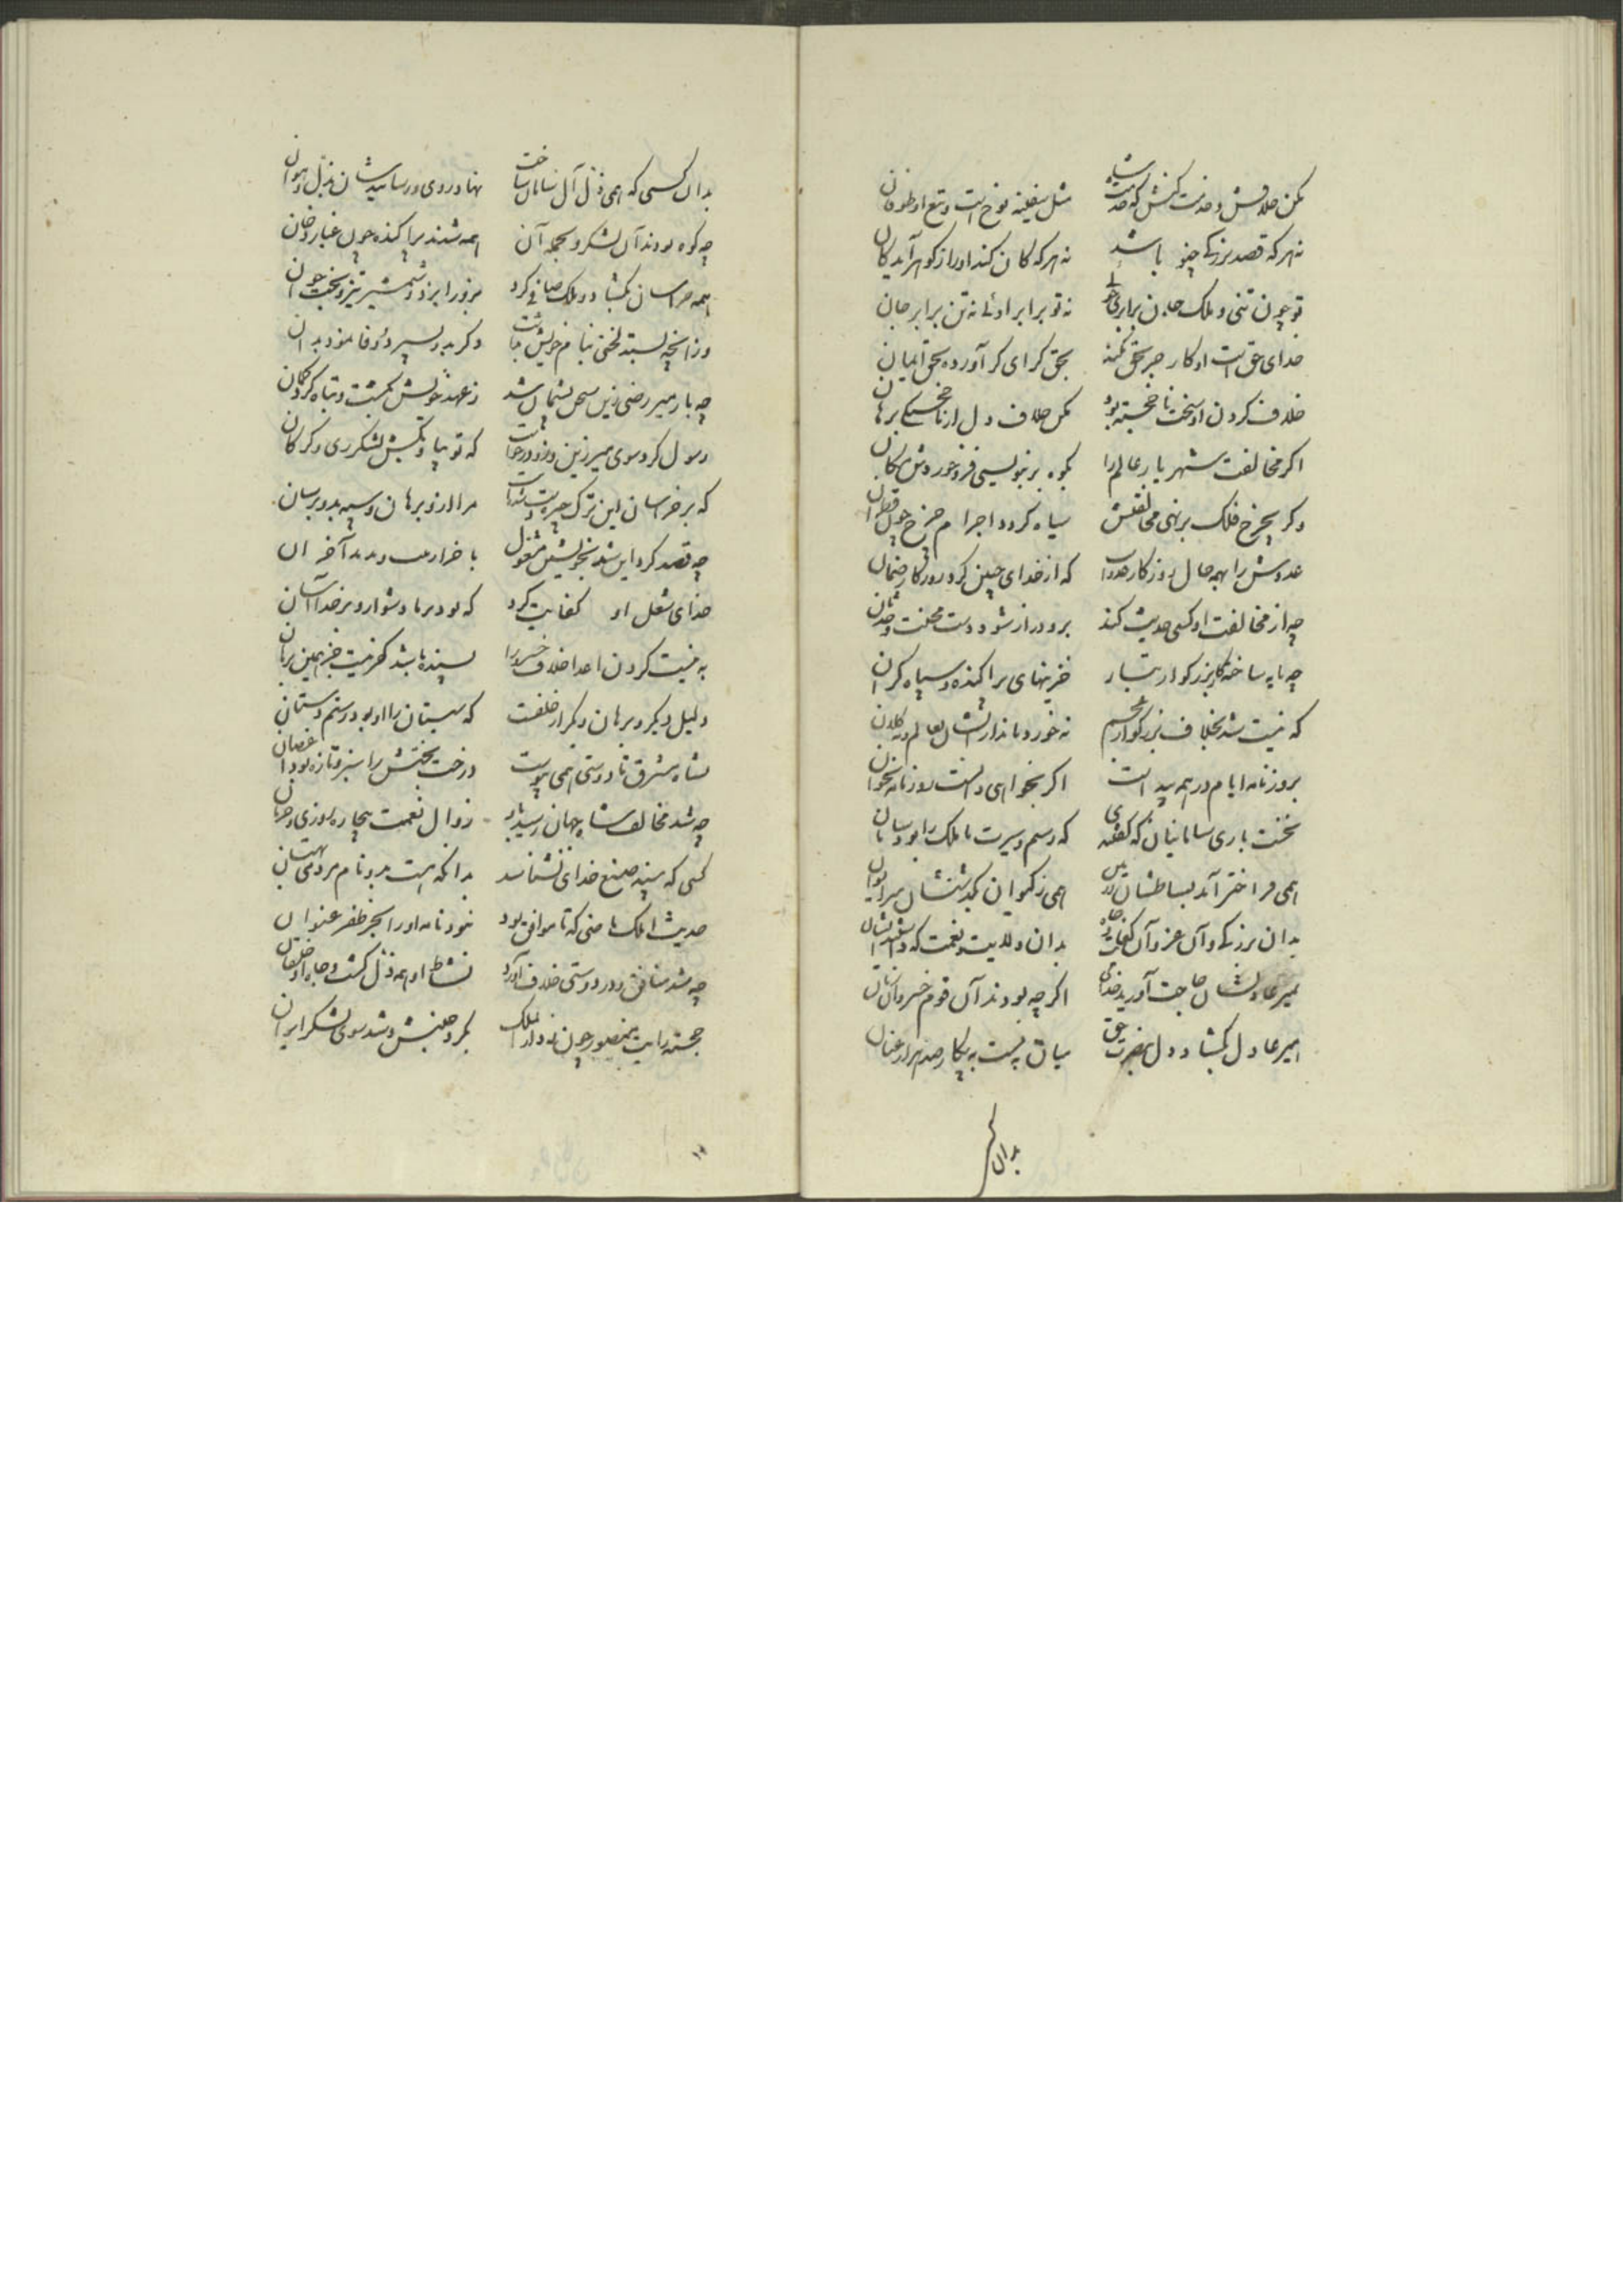 مکن خلافش و خدمت کنش که خدمت شاه    مثل سفینه نوح است و تیغ او طوفان
نه هرکه قصد بزرکی چنو باشد    نه هرکه کان کند او را ز کوهر آید کان
تو چون تنی و ملک جان    نه تو برابر اوئی نه تن برابر جان
خدای حق است او کار جز بحق نکند    بحق کرای کر آورده بحق ایمان
خلاف کردن او سخت ناخجسته بود    مکن خلاف و دل از ناخجستکی برهان
اکر مخالفت شهریار عالم را    بکوه بر بنویسی فرو خورد
وکر بچرخ فلک برنهی مخالفتش    سیاه کردد اجرام چرخ چون قطران
عدوش را بهمه حال روزکار عدوست    که از خدای چنین کرد روزکار ضمان
چه از مخالفت او کسی حدیث کند    برو دراز شود دست محنت و
چه مایه ساخته کار بزرکوار تبار    خزینهای پراکنده و سپاه کران
که نیست شد بخلاف بزرکوار    نه خورد ماند ازایشان بعالم و نه کلان
بروزنامه ایام در همه پیداست    اکر بخواهی دانست روزنامه بخوان
نخست باری سامانیان که کفتی    که رسم و سیرت ملک را بود سامان
همی فراختر آمد بساطشان    همی ز کیوان بکذشتشان سر ایوان
بدان بزرکی و آن عز و آن کفایت    بدان ولایت و نعمت که داشتند ایشان
بمیر عادلشان حاجت آورید خدای    اکرچه بودند آن قوم خسروان زمان
امیر عادل بکشاد دل بنصرت حق    میان ببست به پیکار صد هزار عنان
بدان
بدان کسی که همی ذل آل سامان ساخت    نهاد روی و رسانیدشان بذل و هوان
چه کوه بودند آن لشکر و بجمله آن    همه شدند پراکنده چون غبار و دخان
همه خراسان بکشاد و ملک صافی کرد    بزور ایزد و شمشیر تیز و بخت جوان
وز آنچه بستد لختی بنام خویش    دکر بدو بسپرد و وفا نمود بدان
چه بار میر رضی زین محل بشمال شد    ز عهد خویش بکشت و تباه کرد کمان
رسول کرد سوی میر زین و زو درخواست    که تو بیا و بکش لشکر ری و کرکان
که بر خراسان این ترک چیره دست شدست    مرا ازو برهان و سپه بدو برسان
چه قصد کرد این شد بخویشتن مشغول    آخر آن
خدای شغل او کفایت کرد    که بود بر ما دشوار و بر خدا آسان
به نیست کردن اعدا خلاف خسرو را    بسنده باشد کر نیست جز همین برهان
دلیل دیکر و برهان دیکر از خلفست    که سیستان را او بود رستم دستان
بشاه مشرق تا دوستی همی پیوست    درخت بختش را سبز و تازه بود اغصان
چه شد مخالف شاه جهان رسید باو    زوال نعمت بیچاره روزی و حرمان
کسی که بیند صنع خدای نشناسد    بدانکه هست برو نام مردمی بهتان
حدیث ایلک ماضی که تا موافق بود    نبود نامه او را بجز ظفر عنوان
چه شد منافق و در دوستی خلاف آورد    نشاط او همه ذل کشت و جاه او خذلان
خجسته رایت منصور چون    بکرد جنبش و شد سوی لشکر ایران